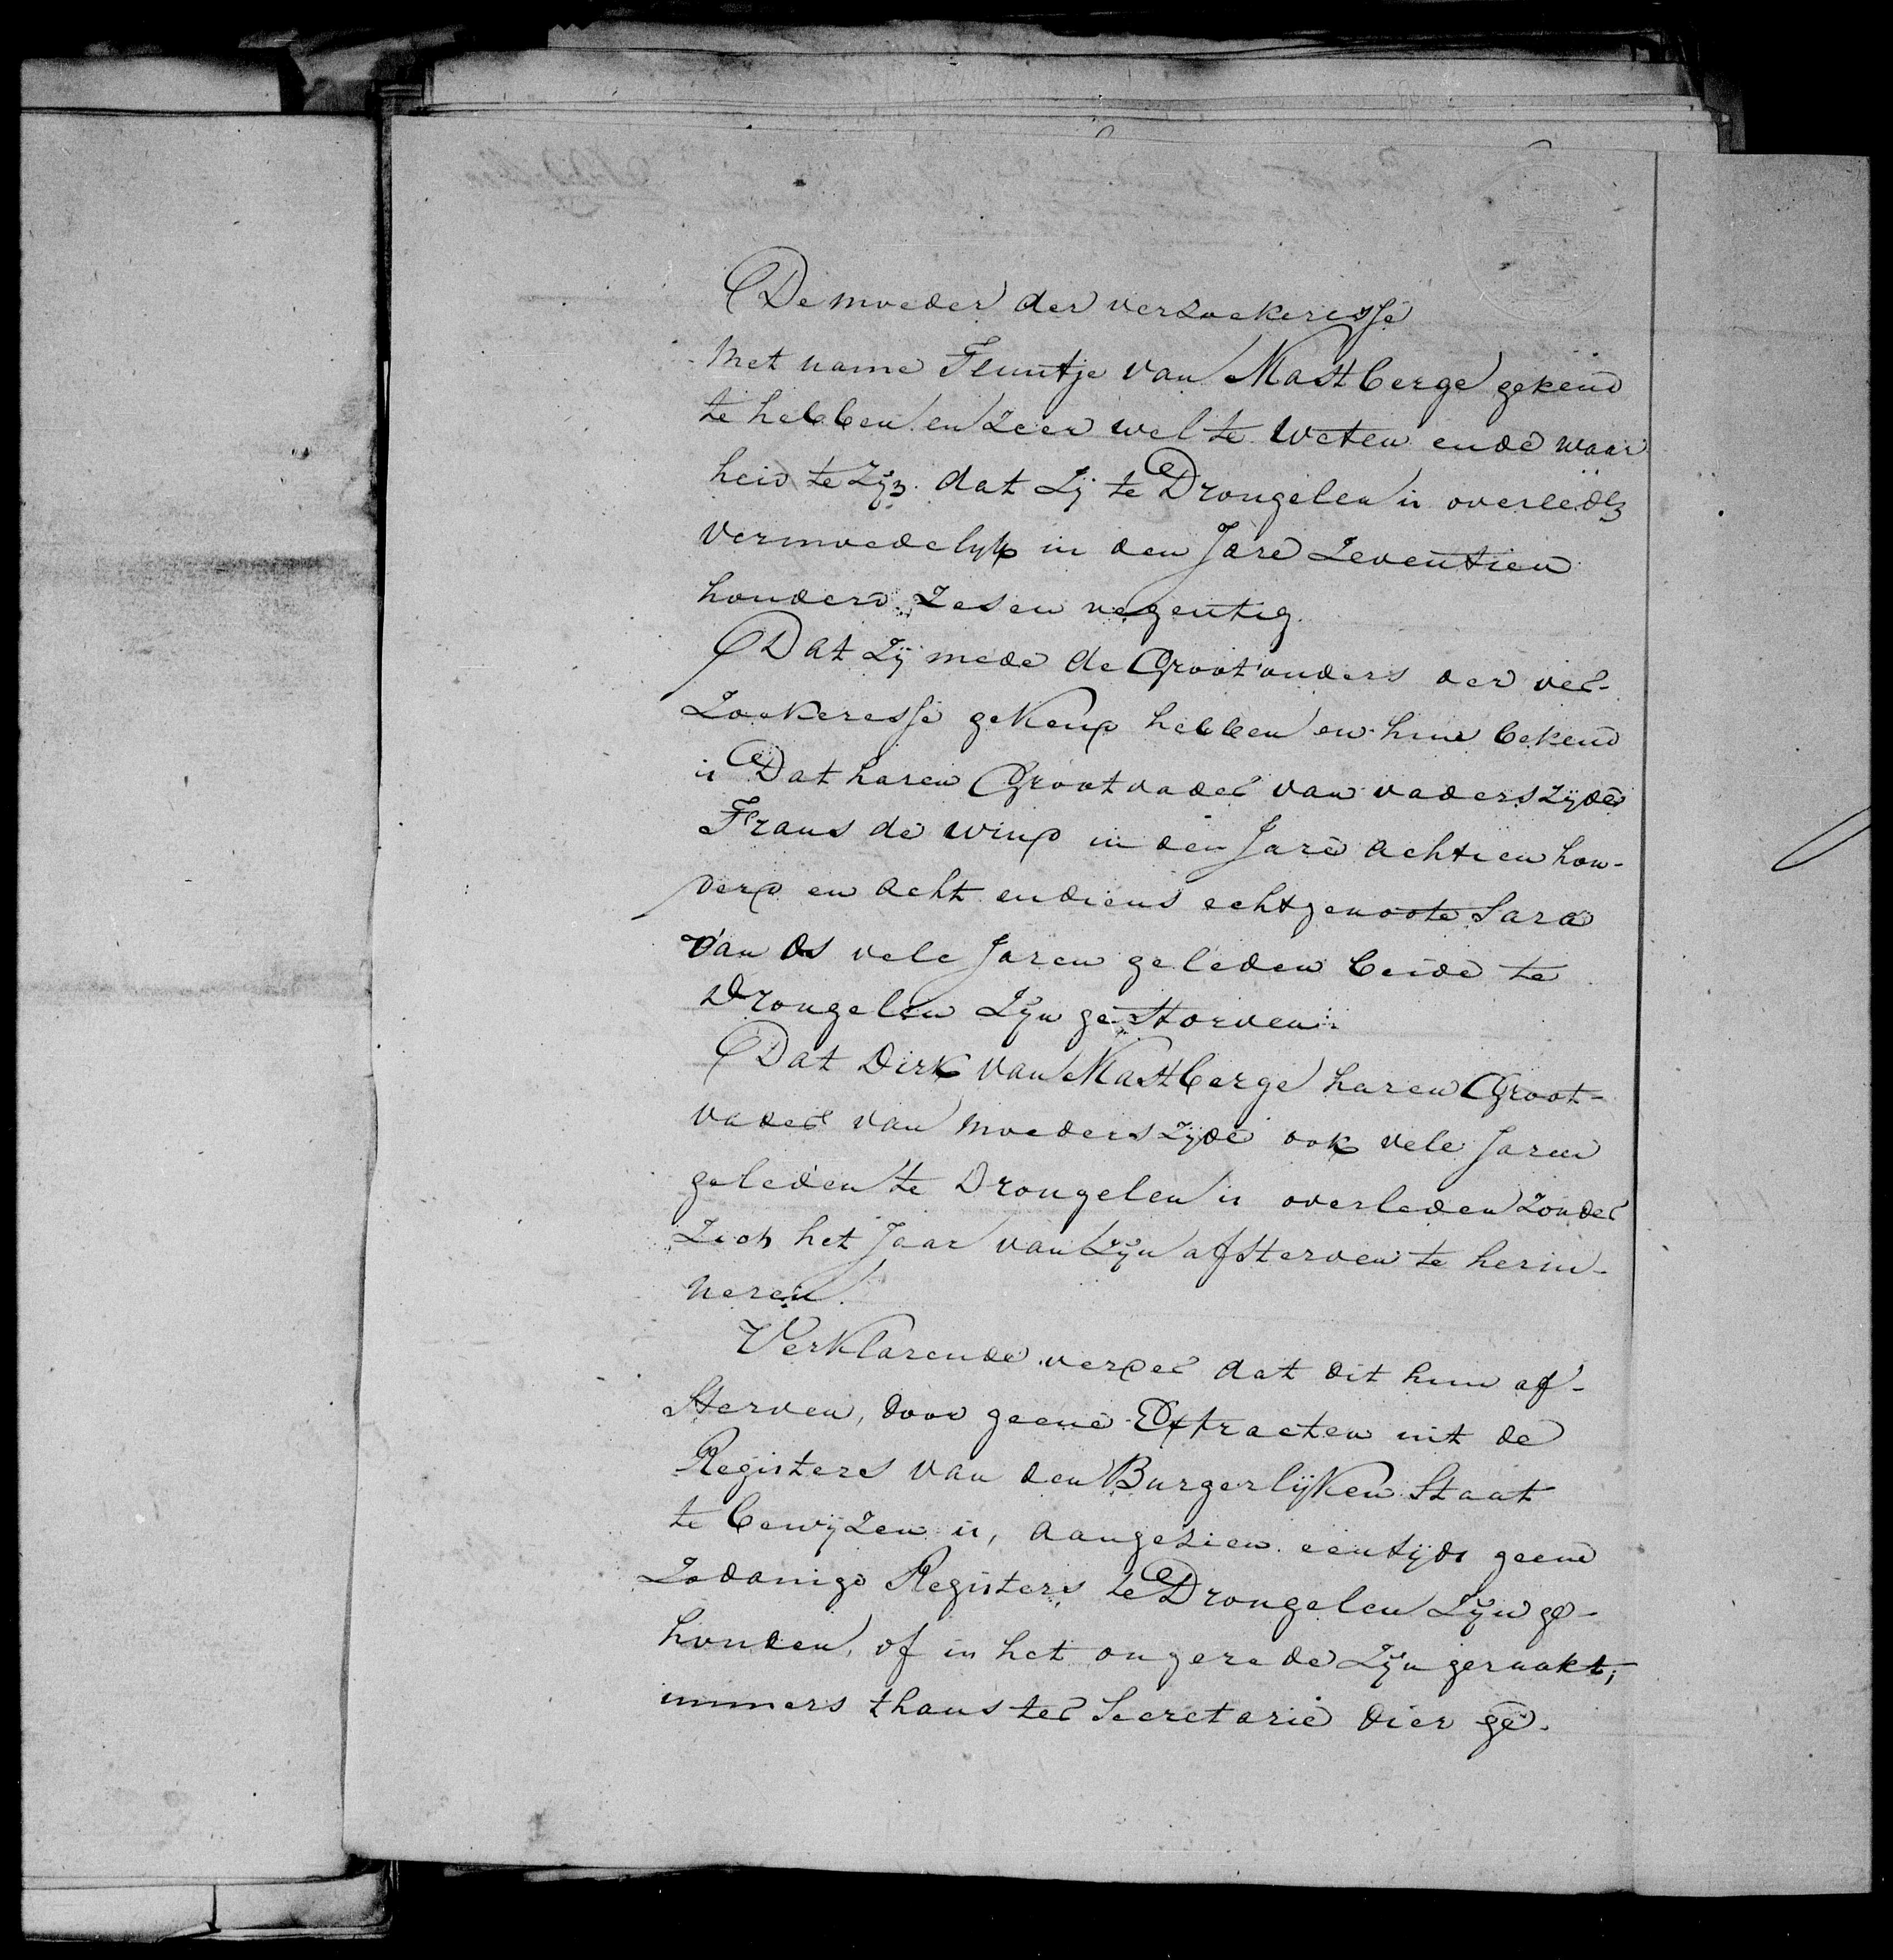 De moeder der verzoekeresse
met name Teuntje van Mastberge gekend
te hebben en zeer wel te weten ende waar
heid te zijn dat zij te Drongelen is overleden
vermoedelyk in den Jare Zeventien
honderd zes en negentig.
Dat zij mede de Groot'ouders der ver-
zoekeresse gekend hebben en hun bekend
is Dat haren Grootvader van vaders zijde
Frans de wind in den Jare achtien hon-
derd en acht en diens echtgenoote Sara
van Os vele Jaren geleden beide te
Drongelen Zijn gestorven.
Dat Dirk van Mastberge haren Groot-
vader van moeders zijde ook vele Jaren
geleden te Drongelen is overleden zonder
Zich het Jaar van zijn afsterven te herin-
neren.
Verklarende verder dat dit hun af-
sterven, door geene Extracten uit de
Registers van den Burgerlijken Staat
te bewijzen is, aangezien eentijds geene
Zodanige Registers te Drongelen Zijn ge-
houden, of in het ongerede Zijn geraakt;
immers thans ter Secretarie dier ge-